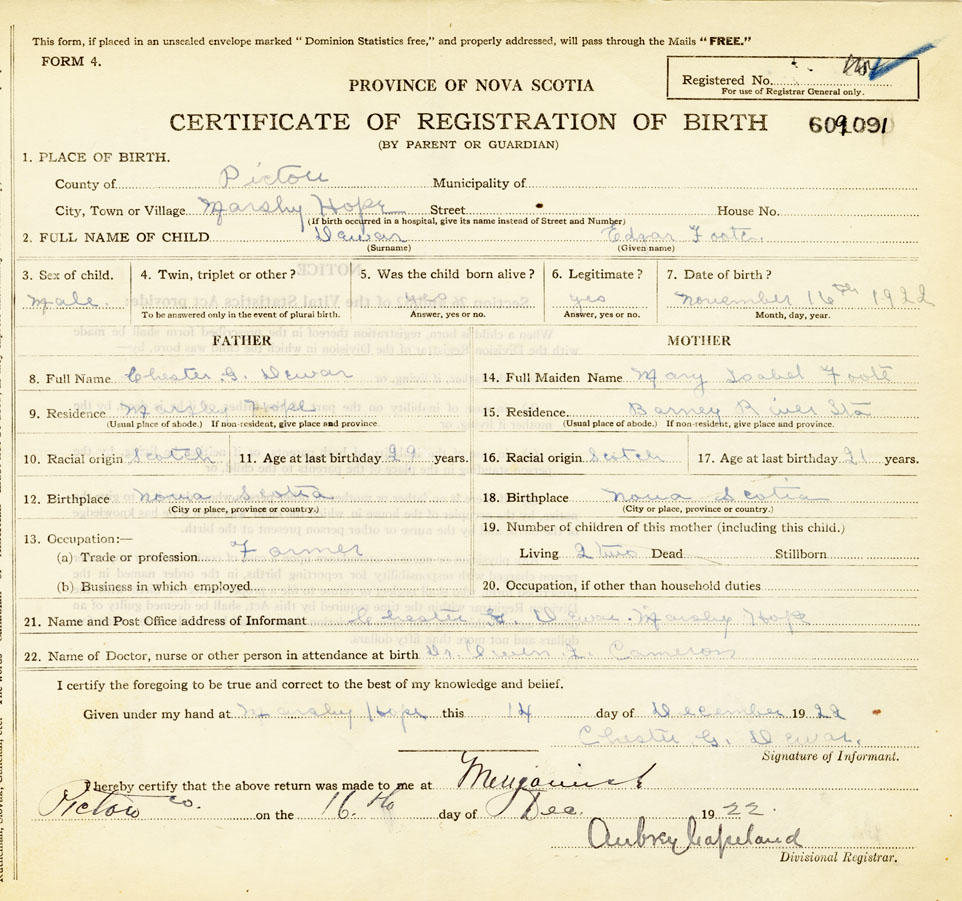 This form, if placed in an unsealed envelope marked "Dominion Statistics free," and properly addressed, will pass through the Mails "FREE."
FORM 4.
Registered No.
For use of Registrar General only.
PROVINCE OF NOVA SCOTIA
CERTIFICATE OF REGISTRATION OF BIRTH 609091
(BY PARENT OR GUARDIAN)
1. PLACE OF BIRTH.
County of Pictou Municipality of
City, Town or Village Marshy Hope Street House No.
(If birth occurred in a hospital, give its name instead of Street and Number)
2. FULL NAME OF CHILD Dewar Edgar Foote.
(Surname) (Given name)
3. Sex of child. 4. Twin, triplet or other? 5. Was the child born alive? 6. Legitimate? 7. Date of birth?
Male. yes yes November 16th 1922
To be answered only in the event of plural birth. Answer, yes or no. Answer, yes or no. Month, day, year.
FATHER MOTHER
8. Full Name Chester G. Dewar 14. Full Maiden Name Mary Isabel Foote
9. Residence Marshy Hope 15. Residence. Barney River Sta
(Usual place of abode.) If non-resident, give place and province. (Usual place of abode.) If non-resident, give place and province.
10. Racial origin Scotch 11. Age at last birthday 29 years. 16. Racial origin Scotch 17. Age at last birthday 21 years.
12. Birthplace Nova Scotia 18. Birthplace Nova Scotia
(City or place, province or country.) (City or place, province or country.)
13. Occupation:— 19. Number of children of this mother (including this child.)
(a) Trade or profession Farmer Living 2 two Dead Stillborn
(b) Business in which employed 20. Occupation, if other than household duties
21. Name and Post Office address of Informant Chester G. Dewar. Marshy Hope
22. Name of Doctor, nurse or other person in attendance at birth Dr. Owen Cameron
I certify the foregoing to be true and correct to the best of my knowledge and belief.
Given under my hand at Marshy Hope this 14 day of December 1922
Chester G. Dewar.
Signature of Informant.
I hereby certify that the above return was made to me at
Pictou Co. on the 16.th day of Dec. 1922.
Aubrey Copeland
Divisional Registrar.